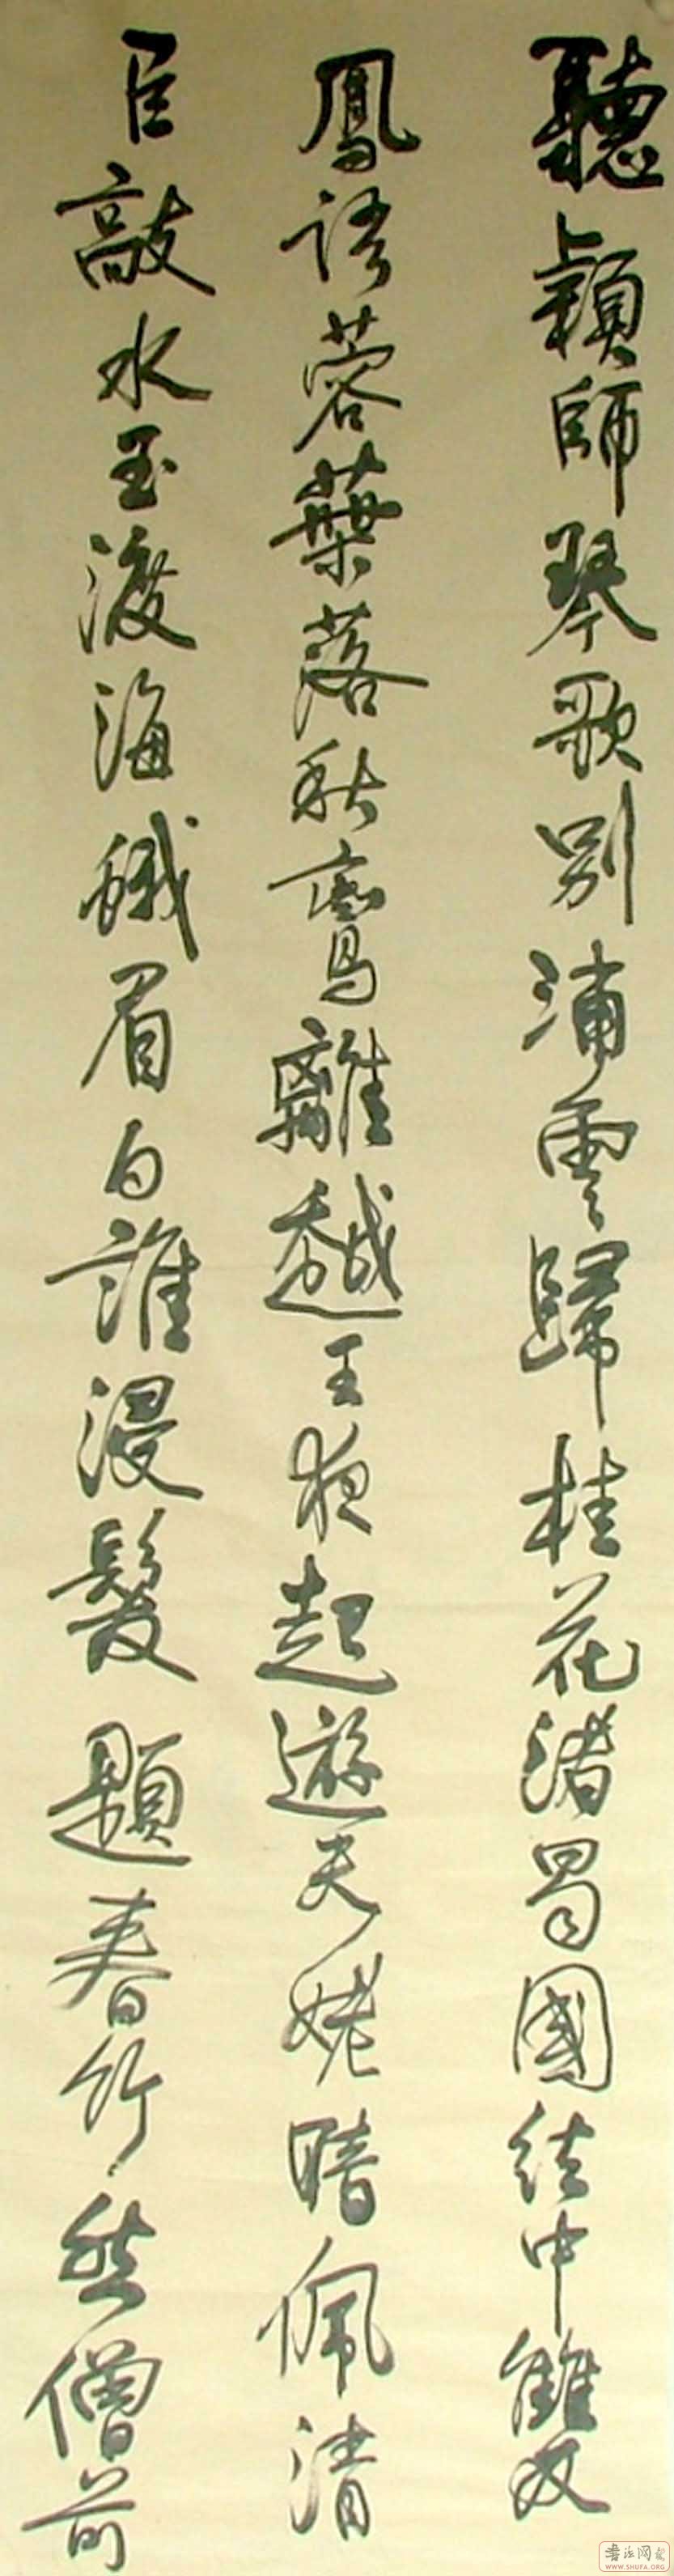 聽穎師琴歌別浦雲歸桂花渚蜀國絃中雙
鳳語蓉葉落秋鸞離越王夜起遊天姥暗佩清
臣敲水玉渡海蛾眉白誰浸髮題春竹然僧前
書法网
WWW.SHUFA.ORG